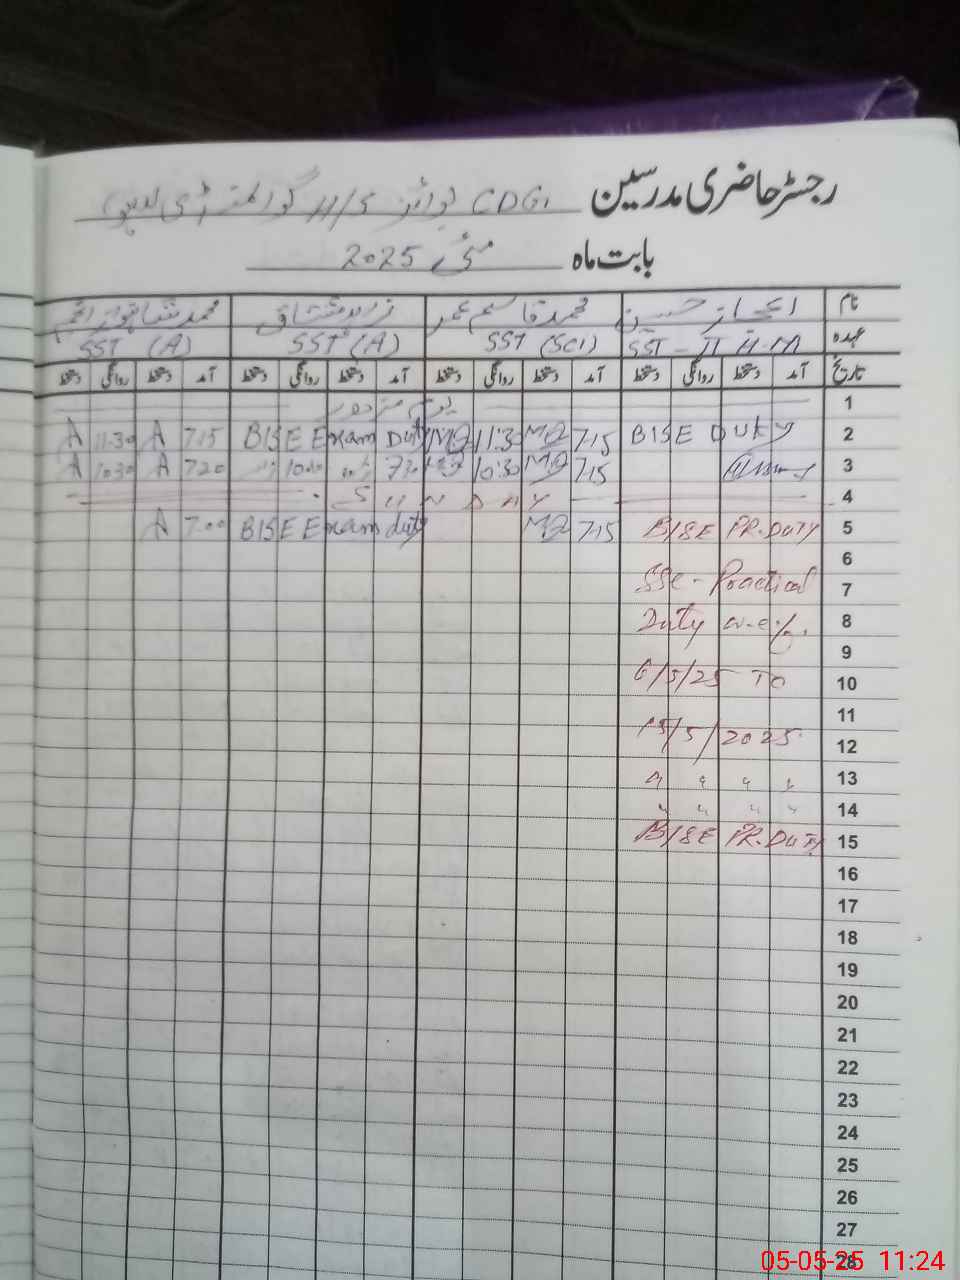 رجسٹر حاضری مدرسین CDG بوائز H/S
بابت ماہ مئی 2025
نام اعجاز حسین محمد قاسم عمر زاہد مشتاق محمد شاہنواز انجم
عہدہ SST - II H.M SST (SCI) SST (A) SST (A)
تاریخ آمد دستخط روانگی دستخط آمد دستخط روانگی دستخط آمد دستخط روانگی دستخط آمد دستخط روانگی دستخط
1 یوم مزدور
2 BISE Duty 7:15 MQ 11:30 MQ BISE Exam Duty 7:15 A 11:30 A
3 7:15 MQ 10:30 MQ 7:20 A 10:30 A
4 SUNDAY
5 BISE PR. DUTY 7:15 MQ BISE Exam duty 7:00 A
6
7 SSC - Practical
8 Duty w.e.f.
9
10 6/5/25 TO
11
12 15/5/2025
13 " " " "
14 " " " "
15 BISE PR. DUTY
16
17
18
19
20
21
22
23
24
25
26
27
28
05-05-25 11:24